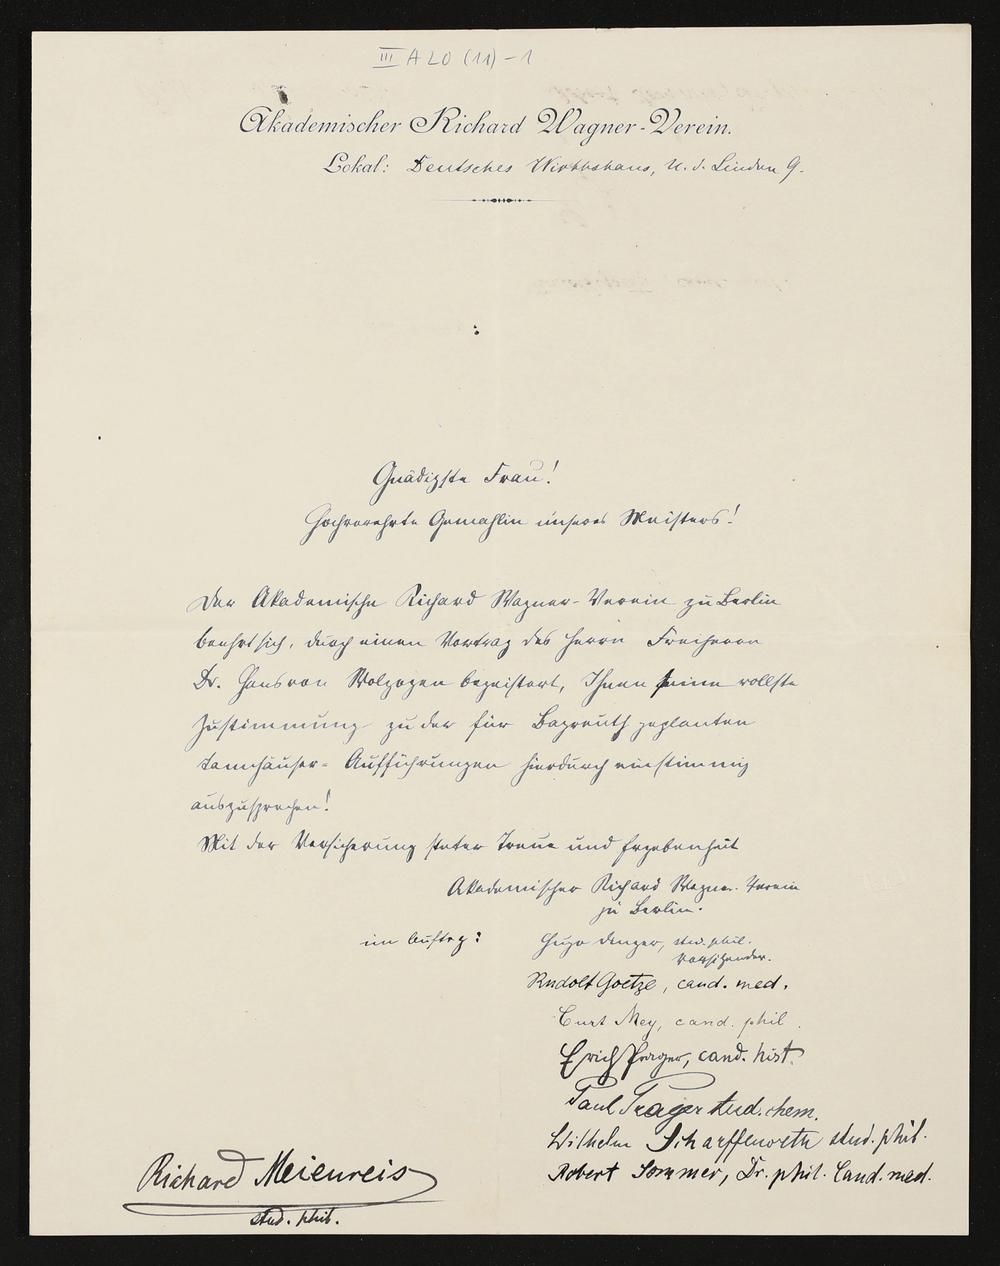 III A 20 (11) - 1
Akademischer Richard Wagner-Verein.
Lokal: Deutsches Wirthshaus, U. d. Linden 9.
Gnädigste Frau!
Hochverehrte Gemahlin unseres Meisters!
Der Akademische Richard Wagner-Verein zu Berlin
beehrt sich, durch einen Vortrag des Herrn Freiherrn
Dr. Hans von Wolzogen begeistert, Ihnen seine vollste
Zustimmung zu der für Bayreuth geplanten
Tannhäuser-Aufführungen hierdurch einstimmig
auszusprechen!
Mit der Versicherung steter Treue und Ergebenheit
Akademischer Richard Wagner-Verein
zu Berlin.
im Auftrg:
Hugo Dinger, stud. phil.
Vorsitzender.
Rudolf Goetze, cand. med.
Curt Mey, cand. phil.
Erich Prager, cand. hist.
Paul Trager stud. chem.
Wilhelm Scharffenorth stud. phil.
Robert Sommer, Dr. phil. Cand. med.
Richard Meienreis
stud. phil.